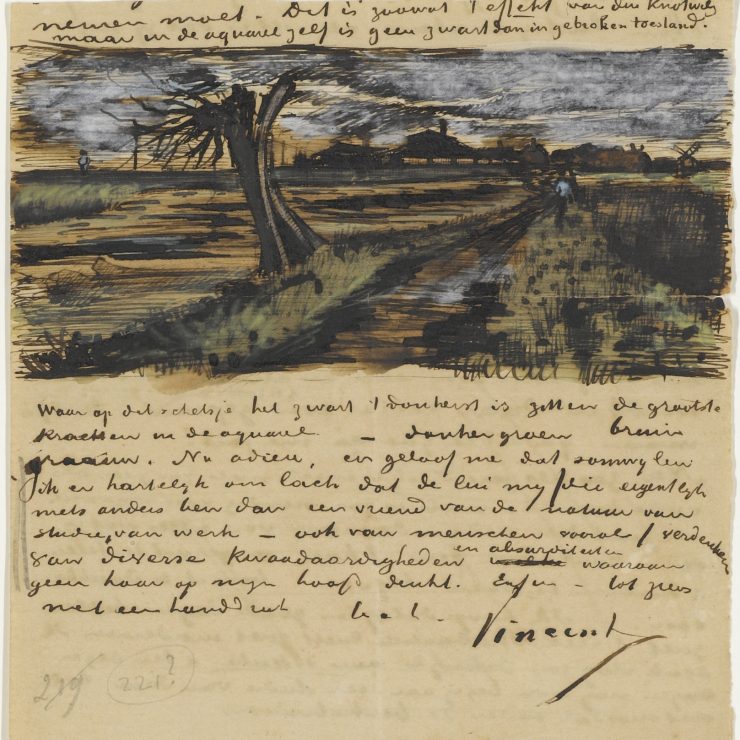 nemen moet. Dit is zoowat 't effekt van den Knotwilg
maar in de aquarel zelf is geen zwart dan in gebroken toestand.
Waar op dit schetsje het zwart 't donkerst is zitten de grootste
krachten in de aquarel – donkergroen bruin
graauw. Nu adieu, en geloof me dat somwylen
ik er hartelyk om lach dat de lui my /die eigentlyk
niets anders ben dan een vriend van de natuur van
studie, van werk – ook van menschen vooral/ verdenken
van diverse kwaadaardigheden en absurditeiten waaraan
geen haar op myn hoofd denkt. Enfin – tot ziens
met een handdruk b. à t.
Vincent
219 221?